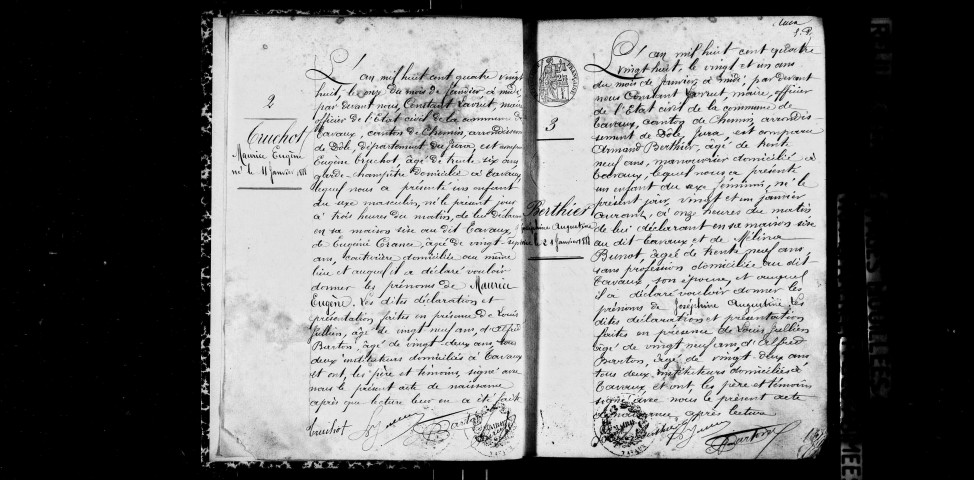 2
Truchot
Maurice Eugène
né le 11 Janvier 1888
L'an mil huit cent quatre vingt
huit, le onze du mois de Janvier à midi
par devant nous, Constant Lavret, maire
officier de l'Etat civil de la commune de
Tavaux, canton de Chemin, arrondissem
de Dôle, département du Jura est comparu
Eugène Truchot, âgé de trente-six ans
garde-champêtre domicilié à Tavaux,
lequel nous a présenté un enfant
du sexe masculin, né le présent jour
à trois heures du matin, de lui déclarant
en sa maison sise au dit Tavaux
de Eugénie Crance, âgée de vingt-sept
ans, couturière domiciliée au même
lieu et auquel il a déclaré vouloir
donner les prénoms de Maurice
Eugène. Les dites déclaration et
présentation faites en présence de Louis
Jullien, âgé de vingt neuf ans, d'Alfred
Barton, âgé de vingt-deux ans, tous
deux instituteurs domiciliés à Tavaux
et ont, les père et témoins, signé avec
nous le présent acte de naissance
après que lecture leur en a été faite
Truchot Barton
3
Berthier
Joséphine Augustine
le 21 Janvier 1888
L'an mil huit cent quatre
vingt huit, le vingt et un ans
du mois de Janvier, à midi, par devant
nous Constant Lavret maire, officier
de l'Etat civil de la commune de
Tavaux, canton de Chemin, arrondis-
sement de Dôle, Jura est comparu
Armand Berthier, âgé de trente
neuf ans, manouvrier domicilié à
Tavaux, lequel nous a présenté
un enfant du sexe féminin, né le
présent jour, vingt et un janvier
courant, à onze heures du matin
de lui déclarant en sa maison sise
au dit Tavaux et de Mélina
Bunot, âgée de trente neuf ans
sans profession domiciliée au dit
Tavaux, son épouse, et auquel
il a déclaré vouloir donner les
prénoms de Joséphine Augustine Les
dites déclaration et présentation
faites en présence de Louis Jullien
âgé de vingt neuf ans, d'Alfred
Barton, âgé de vingt deux ans
tous deux instituteurs domiciliés à
Tavaux et ont, les père et témoins
signé avec nous le présent acte
de naissance après lecture
Berthier Barton